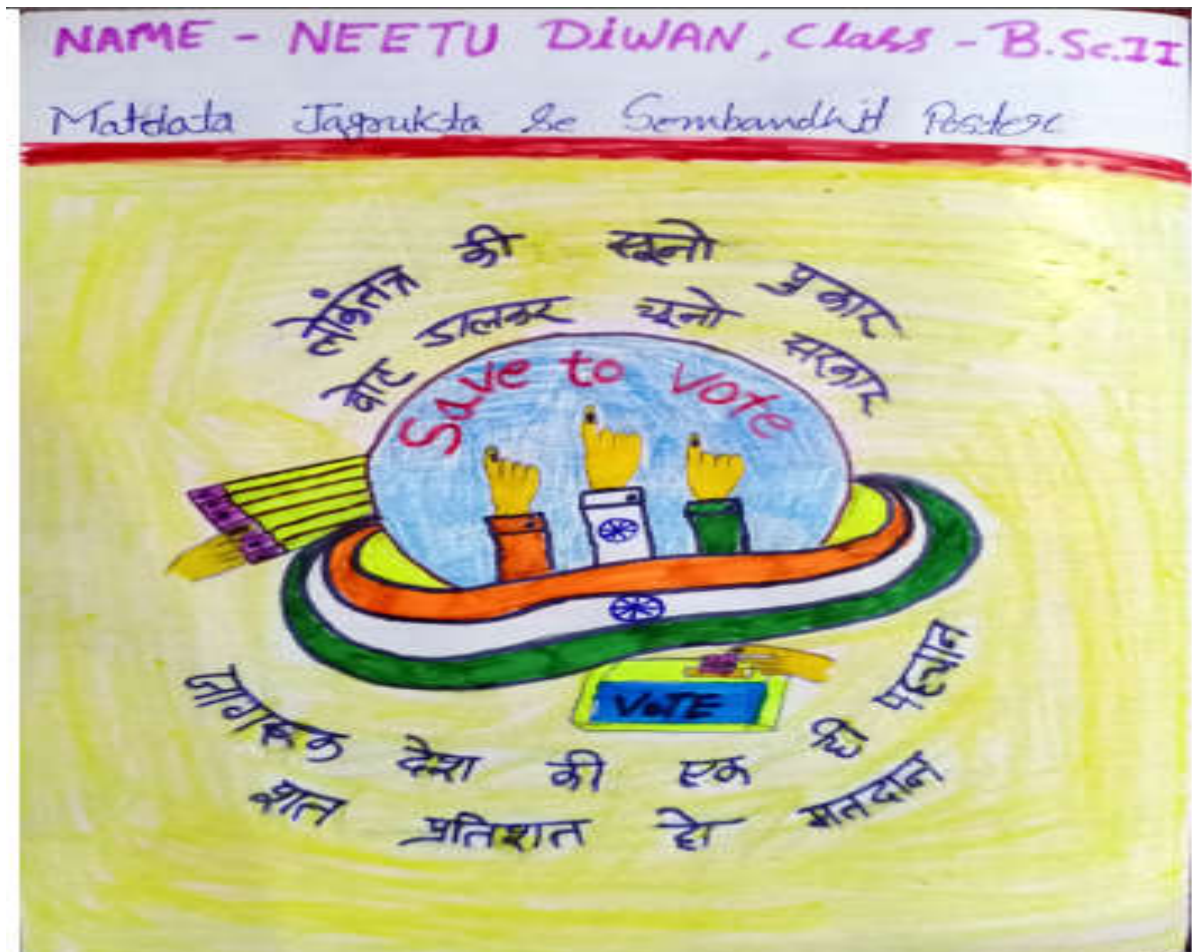 NAME - NEETU DiWAN, Class - B.Sc.II
Matdata Jagrukta Se Sombandhit Poster
लोकंतत्र की सूनो पुकार
वोट डालकर चूनो सरकार
Save to Vote
VOTE
जागरूक देश की एक ही पहचान
शत प्रतिशत हो मतदान